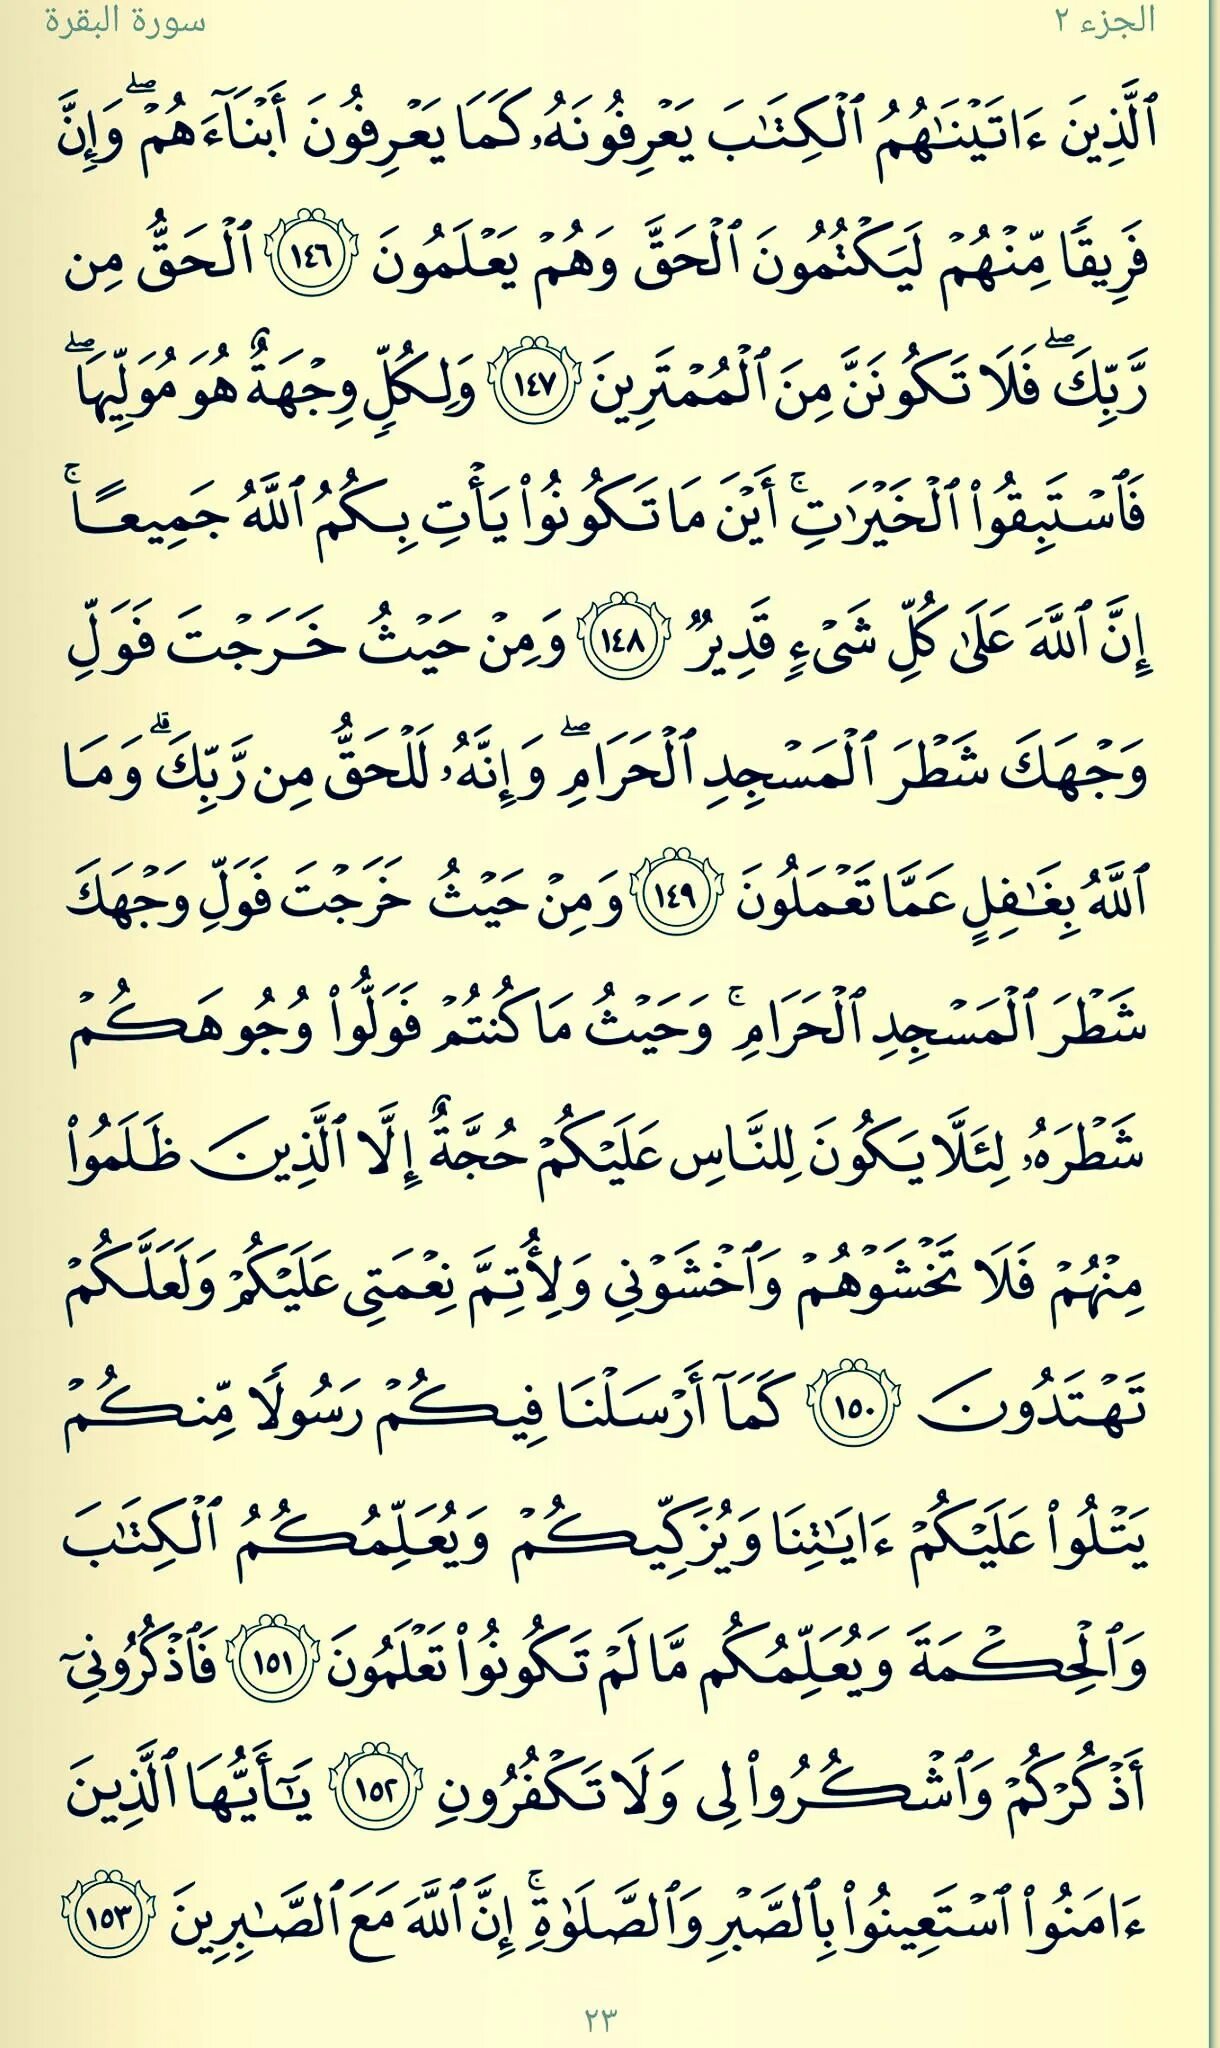 الجزء ٢
سورة البقرة
ٱلَّذِينَ ءَاتَيْنَٰهُمُ ٱلْكِتَٰبَ يَعْرِفُونَهُۥ كَمَا يَعْرِفُونَ أَبْنَآءَهُمْ ۖ وَإِنَّ
فَرِيقًا مِّنْهُمْ لَيَكْتُمُونَ ٱلْحَقَّ وَهُمْ يَعْلَمُونَ ١٤٦ ٱلْحَقُّ مِن
رَّبِّكَ ۖ فَلَا تَكُونَنَّ مِنَ ٱلْمُمْتَرِينَ ١٤٧ وَلِكُلٍّ وِجْهَةٌ هُوَ مُوَلِّيهَا ۖ
فَٱسْتَبِقُوا۟ ٱلْخَيْرَٰتِ ۚ أَيْنَ مَا تَكُونُوا۟ يَأْتِ بِكُمُ ٱللَّهُ جَمِيعًا ۚ
إِنَّ ٱللَّهَ عَلَىٰ كُلِّ شَىْءٍ قَدِيرٌ ١٤٨ وَمِنْ حَيْثُ خَرَجْتَ فَوَلِّ
وَجْهَكَ شَطْرَ ٱلْمَسْجِدِ ٱلْحَرَامِ ۖ وَإِنَّهُۥ لَلْحَقُّ مِن رَّبِّكَ ۗ وَمَا
ٱللَّهُ بِغَٰفِلٍ عَمَّا تَعْمَلُونَ ١٤٩ وَمِنْ حَيْثُ خَرَجْتَ فَوَلِّ وَجْهَكَ
شَطْرَ ٱلْمَسْجِدِ ٱلْحَرَامِ ۚ وَحَيْثُ مَا كُنتُمْ فَوَلُّوا۟ وُجُوهَكُمْ
شَطْرَهُۥ لِئَلَّا يَكُونَ لِلنَّاسِ عَلَيْكُمْ حُجَّةٌ إِلَّا ٱلَّذِينَ ظَلَمُوا۟
مِنْهُمْ فَلَا تَخْشَوْهُمْ وَٱخْشَوْنِى وَلِأُتِمَّ نِعْمَتِى عَلَيْكُمْ وَلَعَلَّكُمْ
تَهْتَدُونَ ١٥٠ كَمَآ أَرْسَلْنَا فِيكُمْ رَسُولًا مِّنكُمْ
يَتْلُوا۟ عَلَيْكُمْ ءَايَٰتِنَا وَيُزَكِّيكُمْ وَيُعَلِّمُكُمُ ٱلْكِتَٰبَ
وَٱلْحِكْمَةَ وَيُعَلِّمُكُم مَّا لَمْ تَكُونُوا۟ تَعْلَمُونَ ١٥١ فَٱذْكُرُونِىٓ
أَذْكُرْكُمْ وَٱشْكُرُوا۟ لِى وَلَا تَكْفُرُونِ ١٥٢ يَٰٓأَيُّهَا ٱلَّذِينَ
ءَامَنُوا۟ ٱسْتَعِينُوا۟ بِٱلصَّبْرِ وَٱلصَّلَوٰةِ ۚ إِنَّ ٱللَّهَ مَعَ ٱلصَّٰبِرِينَ ١٥٣
٢٣